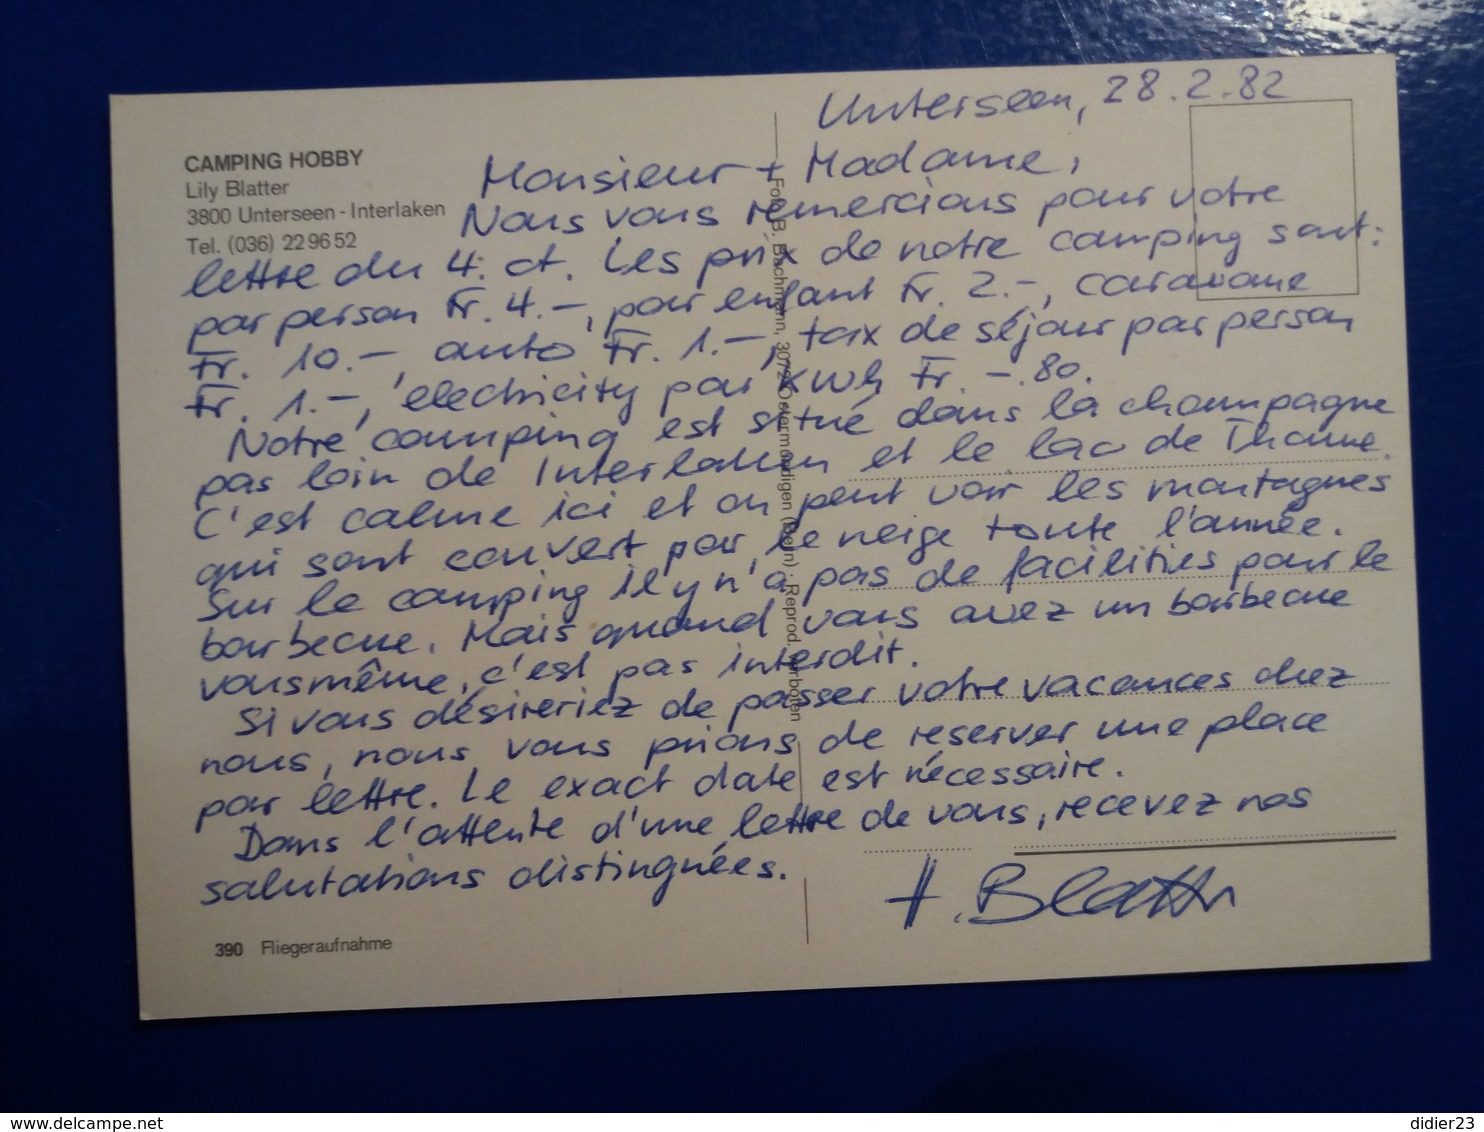 CAMPING HOBBY
Lily Blatter
3800 Unterseen - Interlaken
Tel. (036) 22 96 52
Unterseen, 28.2.82
Monsieur + Madame,
Nous vous remercions pour votre
lettre du 4. ct. Les prix de notre camping sont:
par person Fr. 4.-, par enfant Fr. 2.-, caravane
Fr. 10.-, auto Fr. 1.-, tax de séjour par person
Fr. 1.-, electricity par KWh Fr. -.80.
Notre camping est situé dans la champagne
pas loin de Interlaken et le lac de Thoune.
C'est calme ici et on peut voir les montagnes
qui sont couvert par le neige toute l'année.
Sur le camping il y n'a pas de facilities pour le
barbecue. Mais quand vous avez un barbecue
vousmême, c'est pas interdit.
Si vous désireriez de passer votre vacances chez
nous, nous vous prions de réserver une place
par lettre. Le exact date est nécessaire.
Dans l'attente d'une lettre de vous, recevez nos
salutations distinguées.
H. Blatter
390 Fliegeraufnahme
Foto B. Bachmann, 3072 Ostermundigen (Bern) · Reprod. verboten
delcampe.net
didier23